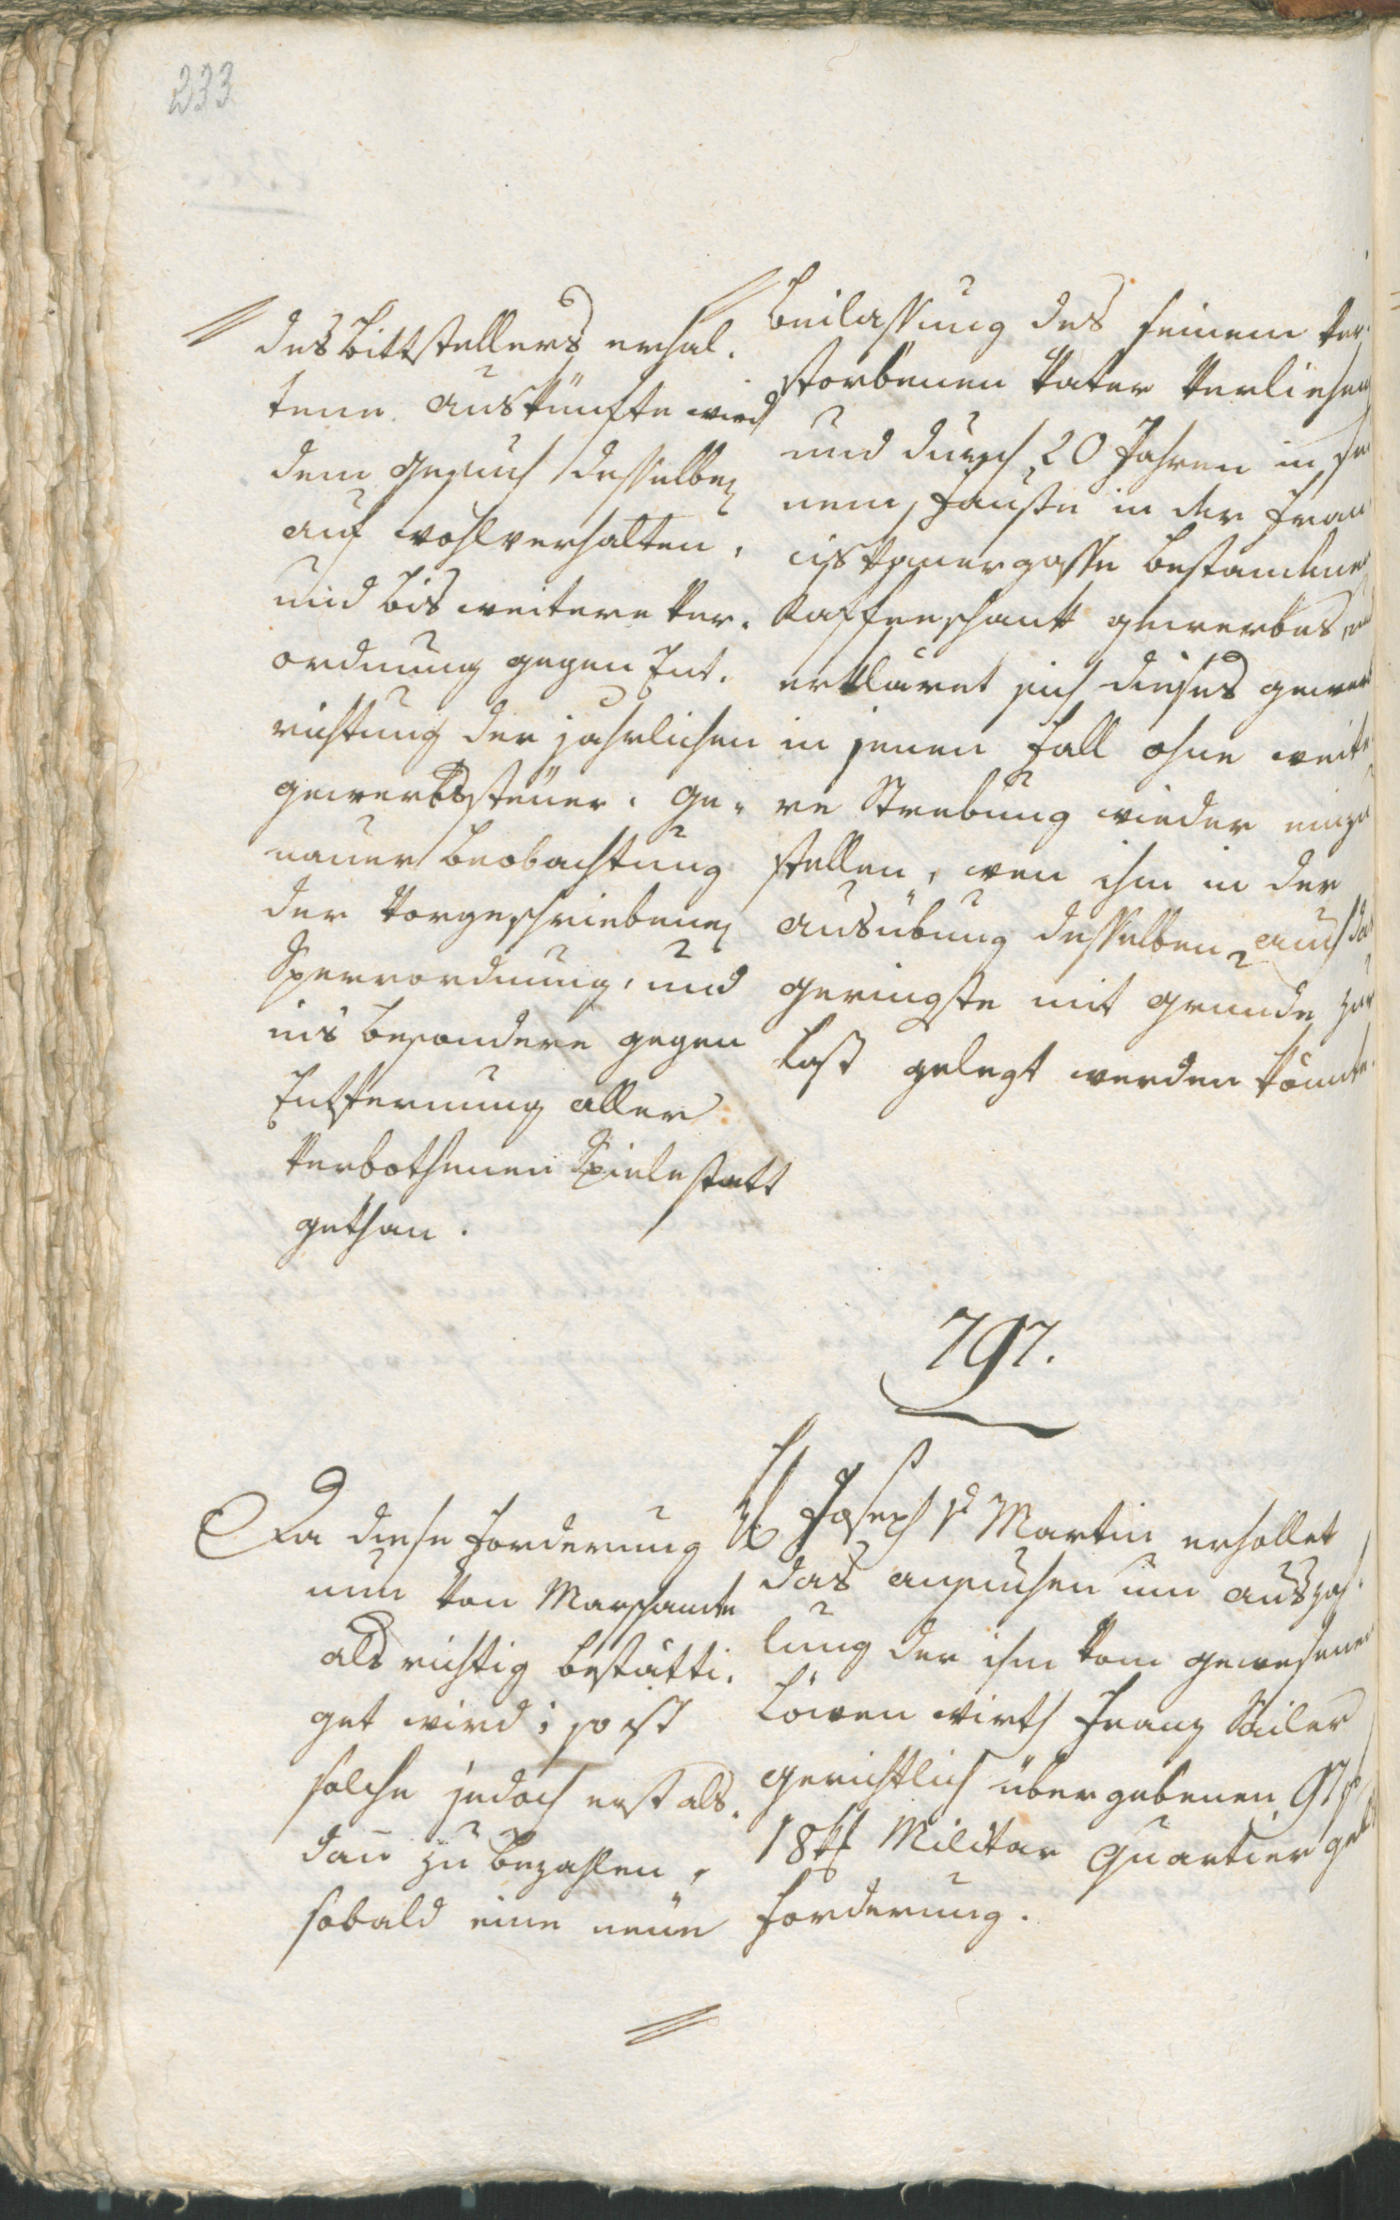 233
des Bittstellers erhal-
tene Auskünfte wird
dem Gesuch desselben
auf wohlverhalten,
und bis weitere Ver-
ordnung gegen Ent-
richtung der jahrlichen
gewerbssteuer, Ge-
nauer Beobachtung
der Vorgeschriebenen
Sperrordnung, und
ins besondere gegen
Entfernung aller
Verbothenen Spiele statt
gethan.
Beilassung des seinem Ver-
storbenen Vater Verliehen
und durch 20 Jahren in sei
nem Hauße in der Fran
ciskanergasse bestandenen
Kaffeeschank gewerbes, und
erkläret sich dieses gewerb
in jenen Fall ohne weite-
re Strebung wieder einzu
stellen, wen ihm in der
Ausübung desselben auch das
geringste mit Grunde zur
Last gelegt werden könnte.
797.
Da diese Forderung
nun von Marschamte
als richtig bestätti-
get wird; so ist
solche jedoch erst als-
dan zu bezahlen,
sobald eine neue
Joseph v Martin erhollet
das ansuchen um auszah-
lung der ihm vom gewesenen
Löwen wirth Franz Sailer
gerichtlich übergebenen 97 f
18 kr Militar Quartier geld
forderung.